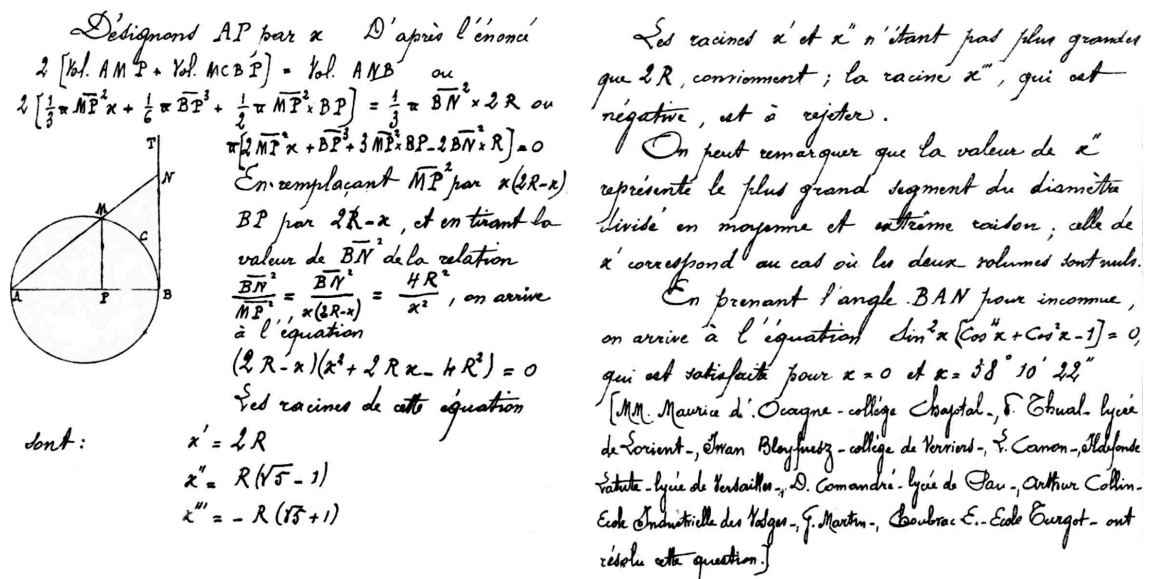 Désignons AP par x   D'après l'énoncé
2 [Vol. AMP + Vol. MCBP] = Vol. ANB   ou
2 [1/3 π MP̅² x + 1/6 π BP̅³ + 1/2 π MP̅² × BP] = 1/3 π BN̅² × 2R   ou
π[2MP̅² x + BP̅³ + 3MP̅² × BP - 2BN̅² × R] = 0
En remplaçant MP̅² par x(2R-x)
BP par 2R-x, et en tirant la
valeur de BN̅² de la relation
BN̅²/MP̅² = BN̅²/x(2R-x) = 4R²/x², on arrive
à l'équation
(2R-x)(x²+2Rx-4R²) = 0
Les racines de cette équation
sont :   x' = 2R
x'' = R(√5-1)
x''' = -R(√5+1)
T
N
M
C
A
P
B
Les racines x' et x'' n'étant pas plus grandes
que 2R, conviennent ; la racine x''', qui est
négative, est à rejeter.
On peut remarquer que la valeur de x''
représente le plus grand segment du diamètre
divisé en moyenne et extrême raison ; celle de
x' correspond au cas où les deux volumes sont nuls.
En prenant l'angle BAN pour inconnue,
on arrive à l'équation Sin²x [Cos⁴x + Cos²x - 1] = 0,
qui est satisfaite pour x = 0 et x = 38° 10' 22''
[MM. Maurice d'Ocagne - collège Chaptal -, Thual - lycée
de Lorient -, Iwan Bleyfuesz - collège de Verviers -, L. Canon -, Ildefonse
Latute - lycée de Versailles -, D. Comandré - lycée de Pau -, Arthur Collin -
Ecole Industrielle des Vosges -, G. Martin -, Boubrac E. - Ecole Turgot - ont
résolu cette question.]